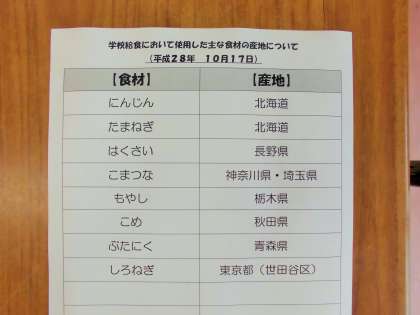 学校給食において使用した主な食材の産地について
（平成28年　10月17日）
【食材】　【産地】
にんじん　北海道
たまねぎ　北海道
はくさい　長野県
こまつな　神奈川県・埼玉県
もやし　栃木県
こめ　秋田県
ぶたにく　青森県
しろねぎ　東京都（世田谷区）